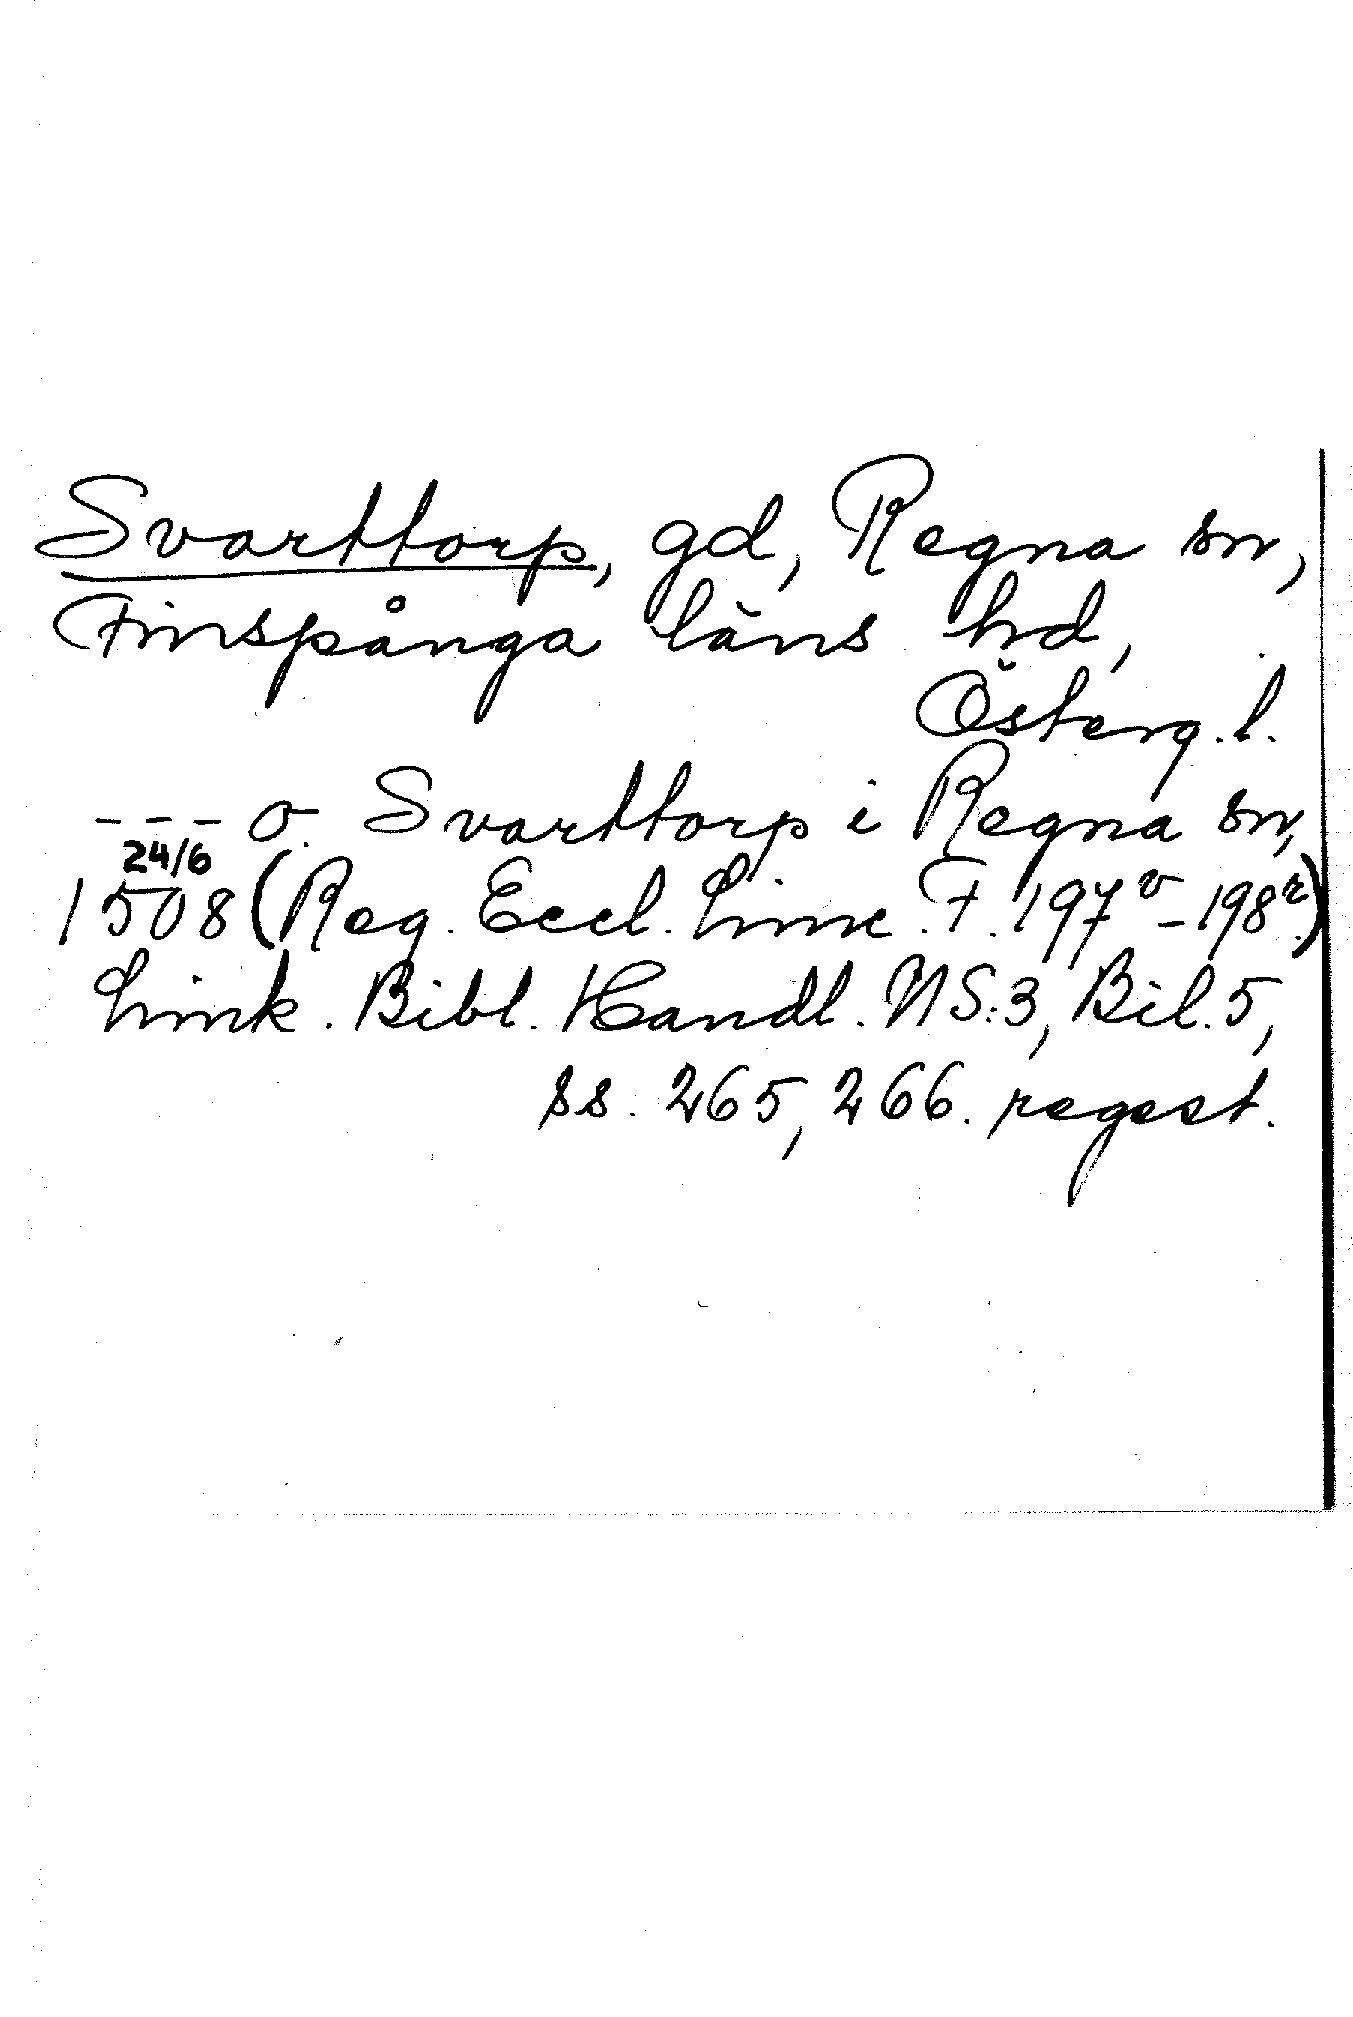 Svarttorp, gd, Regna sn,
Finspånga läns hd,
Österg.l.
--- o. Svarttorp i Regna sn,
24/6
1508 (Reg. Eccl. Linc. F. 197v-198r.)
Link. Bibl. Handl. NS:3, Bil.5,
ss. 265, 266. regest.